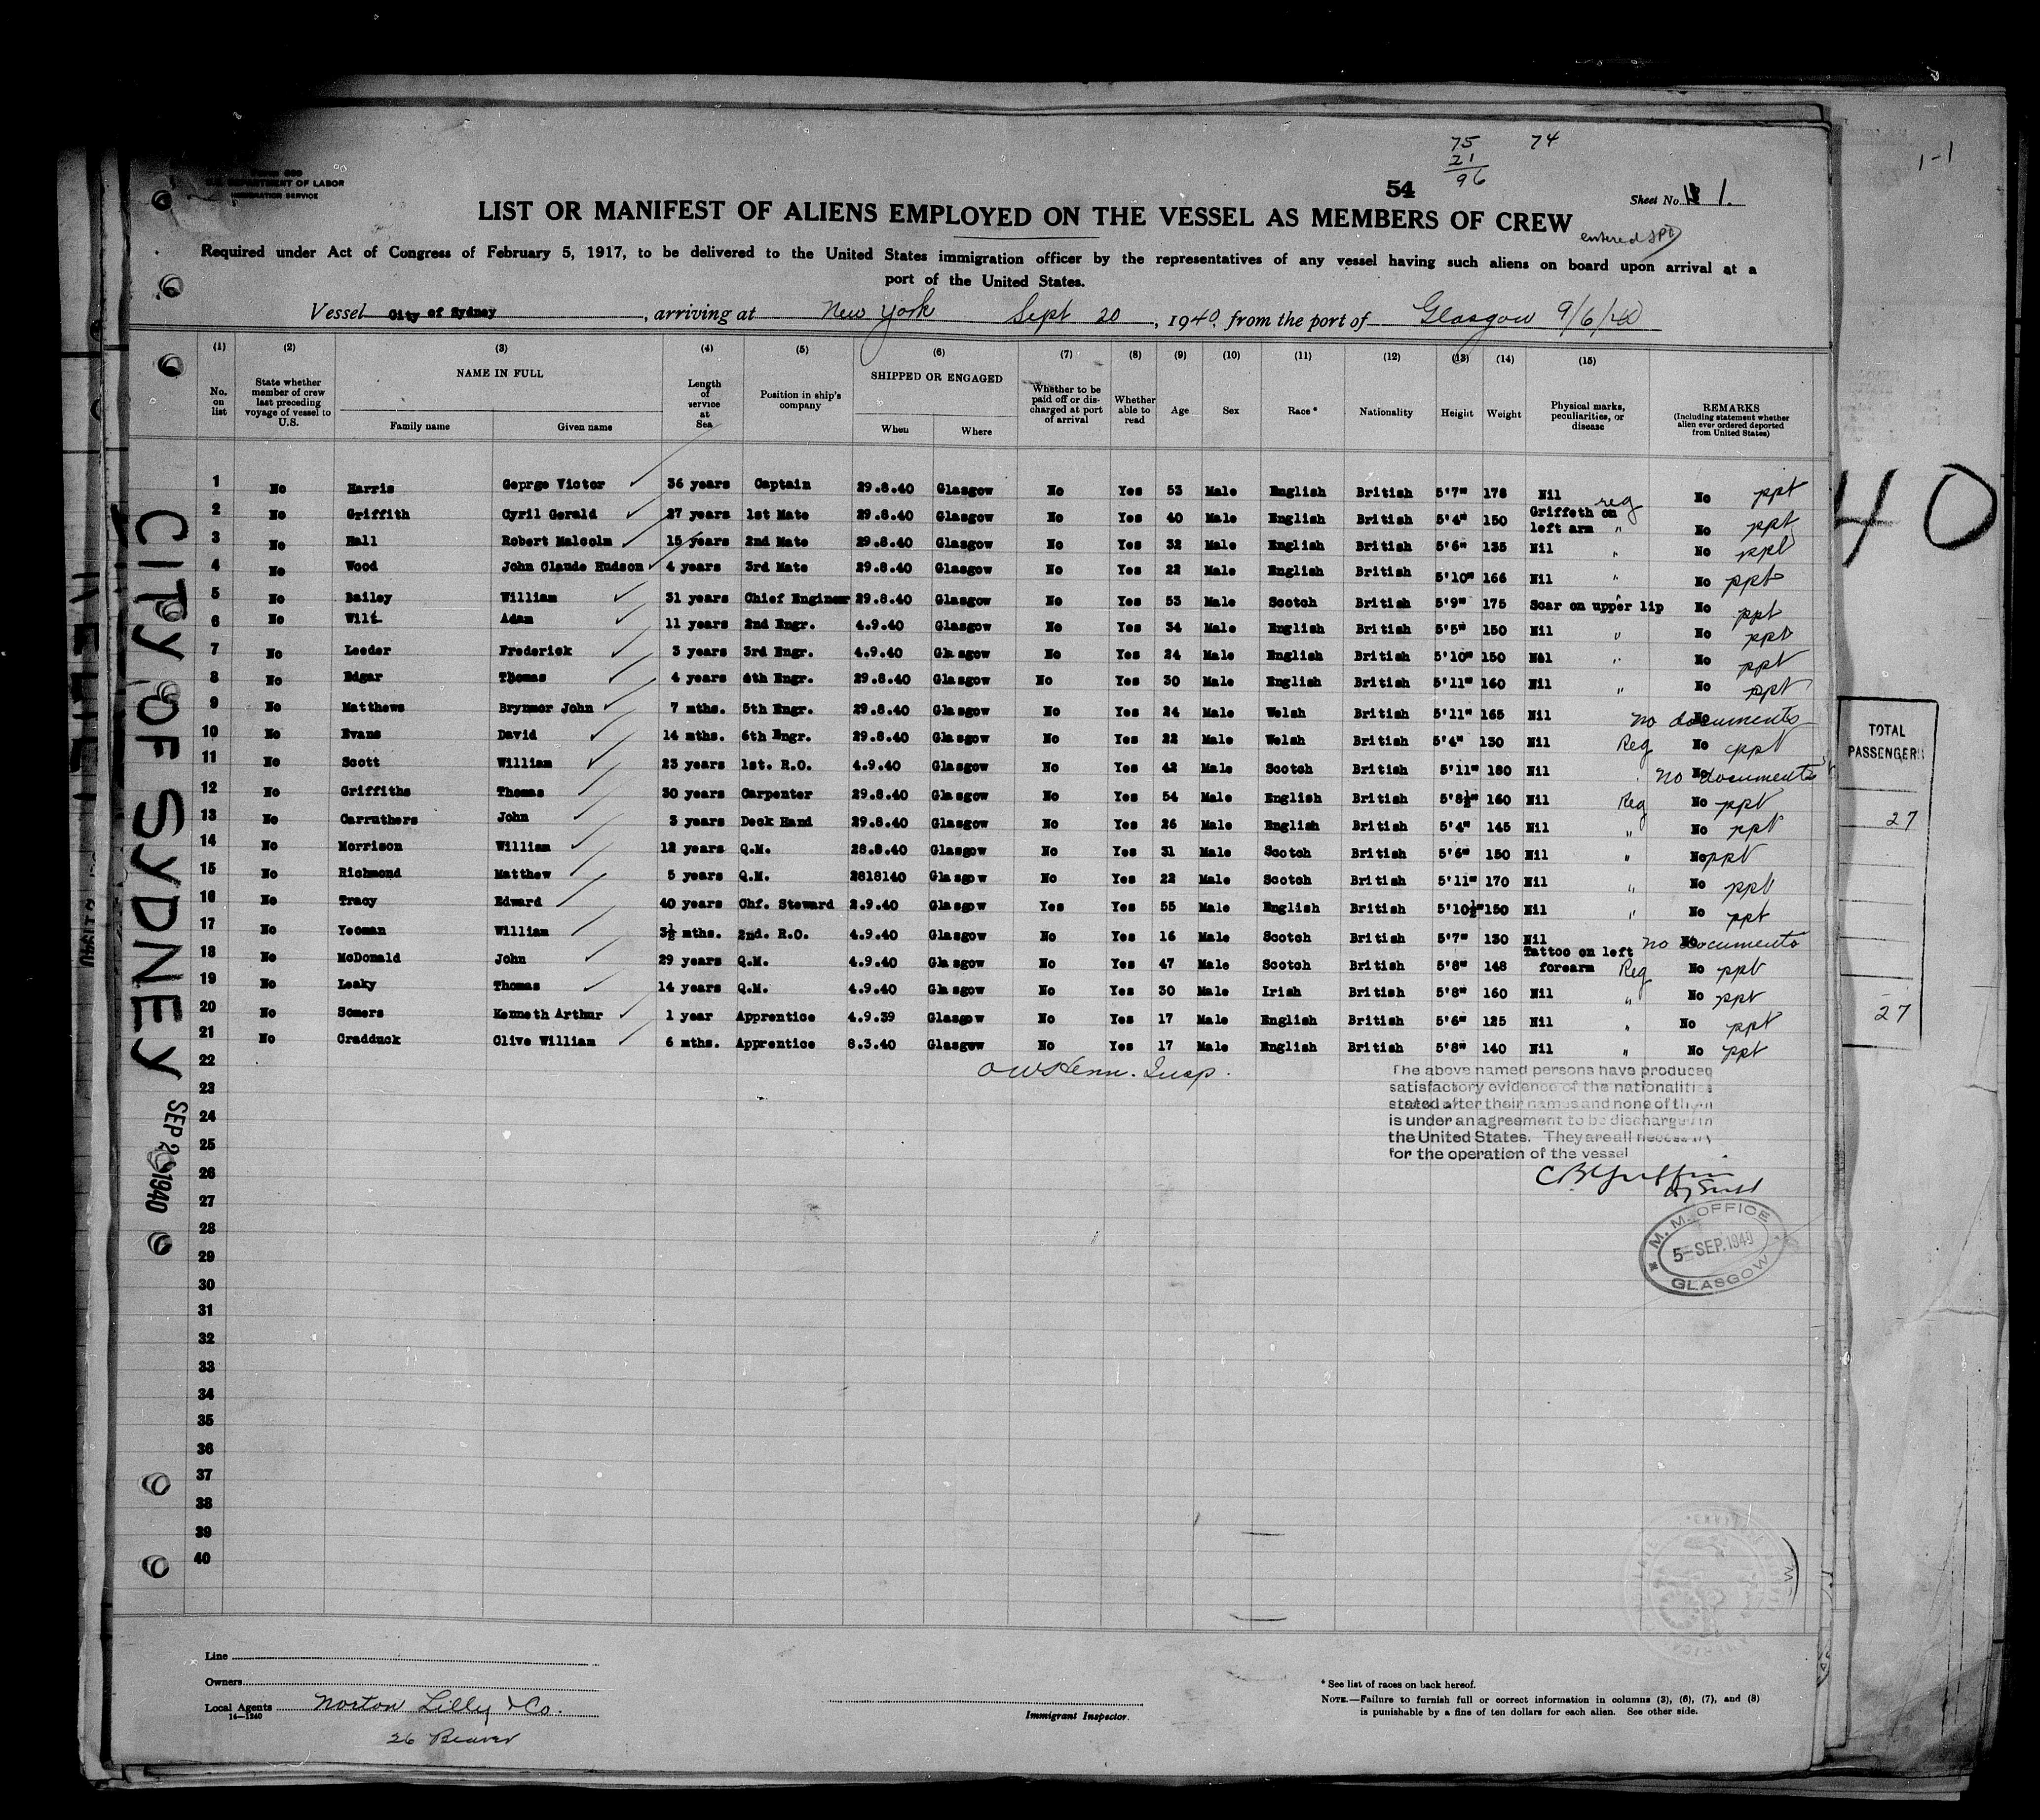 75 74
21
96
54
1-1
Form 680
U.S. DEPARTMENT OF LABOR
IMMIGRATION SERVICE
Sheet No. 1.
LIST OR MANIFEST OF ALIENS EMPLOYED ON THE VESSEL AS MEMBERS OF CREW
entered
Required under Act of Congress of February 5, 1917, to be delivered to the United States immigration officer by the representatives of any vessel having such aliens on board upon arrival at a
port of the United States.
Vessel City of Sydney, arriving at New York Sept 20, 1940, from the port of Glasgow 9/6/40
(1) (2) (3) (4) (5) (6) (7) (8) (9) (10) (11) (12) (13) (14) (15)
No. on list State whether member of crew last preceding voyage of vessel to U.S. NAME IN FULL Family name Given name Length of service at Sea Position in ship's company SHIPPED OR ENGAGED When Where Whether to be paid off or discharged at port of arrival Whether able to read Age Sex Race* Nationality Height Weight Physical marks, peculiarities, or disease REMARKS (Including statement whether alien ever ordered deported from United States)
1 No Harris Geprge Victor 36 years Captain 29.8.40 Glasgow No Yes 53 Male English British 5'7" 178 Nil reg No ppt
2 No Griffith Cyril Gerald 27 years 1st Mate 29.8.40 Glasgow No Yes 40 Male English British 5'4" 150 Griffeth on left arm " No ppt
3 No Hall Robert Malcolm 15 years 2nd Mate 29.8.40 Glasgow No Yes 32 Male English British 5'6" 135 Nil " No ppt
4 No Wood John Claude Hudson 4 years 3rd Mate 29.8.40 Glasgow No Yes 22 Male English British 5'10" 166 Nil " No ppt
5 No Bailey William 31 years Chief Engineer 29.8.40 Glasgow No Yes 53 Male Scotch British 5'9" 175 Scar on upper lip " No ppt
6 No Wilt Adam 11 years 2nd Engr. 4.9.40 Glasgow No Yes 34 Male English British 5'5" 150 Nil " No ppt
7 No Leeder Frederick 3 years 3rd Engr. 4.9.40 Glasgow No Yes 24 Male English British 5'10" 150 Nil " No ppt
8 No Edgar Thomas 4 years 4th Engr. 29.8.40 Glasgow No Yes 30 Male English British 5'11" 160 Nil " No ppt
9 No Matthews Brynmor John 7 mths. 5th Engr. 29.8.40 Glasgow No Yes 24 Male Welsh British 5'11" 165 Nil No no documents
10 No Evans David 14 mths. 6th Engr. 29.8.40 Glasgow No Yes 22 Male Welsh British 5'4" 130 Nil Reg No ppt
11 No Scott William 23 years 1st. R.O. 4.9.40 Glasgow No Yes 42 Male Scotch British 5'11" 180 Nil No no documents
12 No Griffiths Thomas 30 years Carpenter 29.8.40 Glasgow No Yes 54 Male English British 5'8½" 160 Nil Reg No ppt
13 No Carruthers John 3 years Deck Hand 29.8.40 Glasgow No Yes 26 Male English British 5'4" 145 Nil " No ppt
14 No Morrison William 12 years Q.M. 28.8.40 Glasgow No Yes 31 Male Scotch British 5'6" 150 Nil " No ppt
15 No Richmond Matthew 5 years Q.M. 2818140 Glasgow No Yes 22 Male Scotch British 5'11" 170 Nil " No ppt
16 No Tracy Edward 40 years Chf. Steward 2.9.40 Glasgow Yes Yes 55 Male English British 5'10½" 150 Nil " No ppt
17 No Yeoman William 3½ mths. 2nd. R.O. 4.9.40 Glasgow No Yes 16 Male Scotch British 5'7" 130 Nil No no documents
18 No McDonald John 29 years Q.M. 4.9.40 Glasgow No Yes 47 Male Scotch British 5'8" 148 Tattoo on left forearm Reg No ppt
19 No Leaky Thomas 14 years Q.M. 4.9.40 Glasgow No Yes 30 Male Irish British 5'8" 160 Nil " No ppt
20 No Somers Kenneth Arthur 1 year Apprentice 4.9.39 Glasgow No Yes 17 Male English British 5'6" 125 Nil " No ppt
21 No Cradduck Clive William 6 mths. Apprentice 8.3.40 Glasgow No Yes 17 Male English British 5'8" 140 Nil " No ppt
22
23
24
25
26
27
28
29
30
31
32
33
34
35
36
37
38
39
40
Insp.
The above named persons have produced
satisfactory evidence of the nationalities
stated after their names and none of them
is under an agreement to be discharged in
the United States. They are all necessary
for the operation of the vessel
M. M. OFFICE
5-SEP.1940
GLASGOW
CITY OF SYDNEY SEP 20 1940
40
TOTAL
PASSENGERS
27
27
Line
Owners
Local Agents Norton Lilly & Co.
16-1240
26 Beaver
Immigrant Inspector.
* See list of races on back hereof.
NOTE.—Failure to furnish full or correct information in columns (3), (6), (7), and (8)
is punishable by a fine of ten dollars for each alien. See other side.